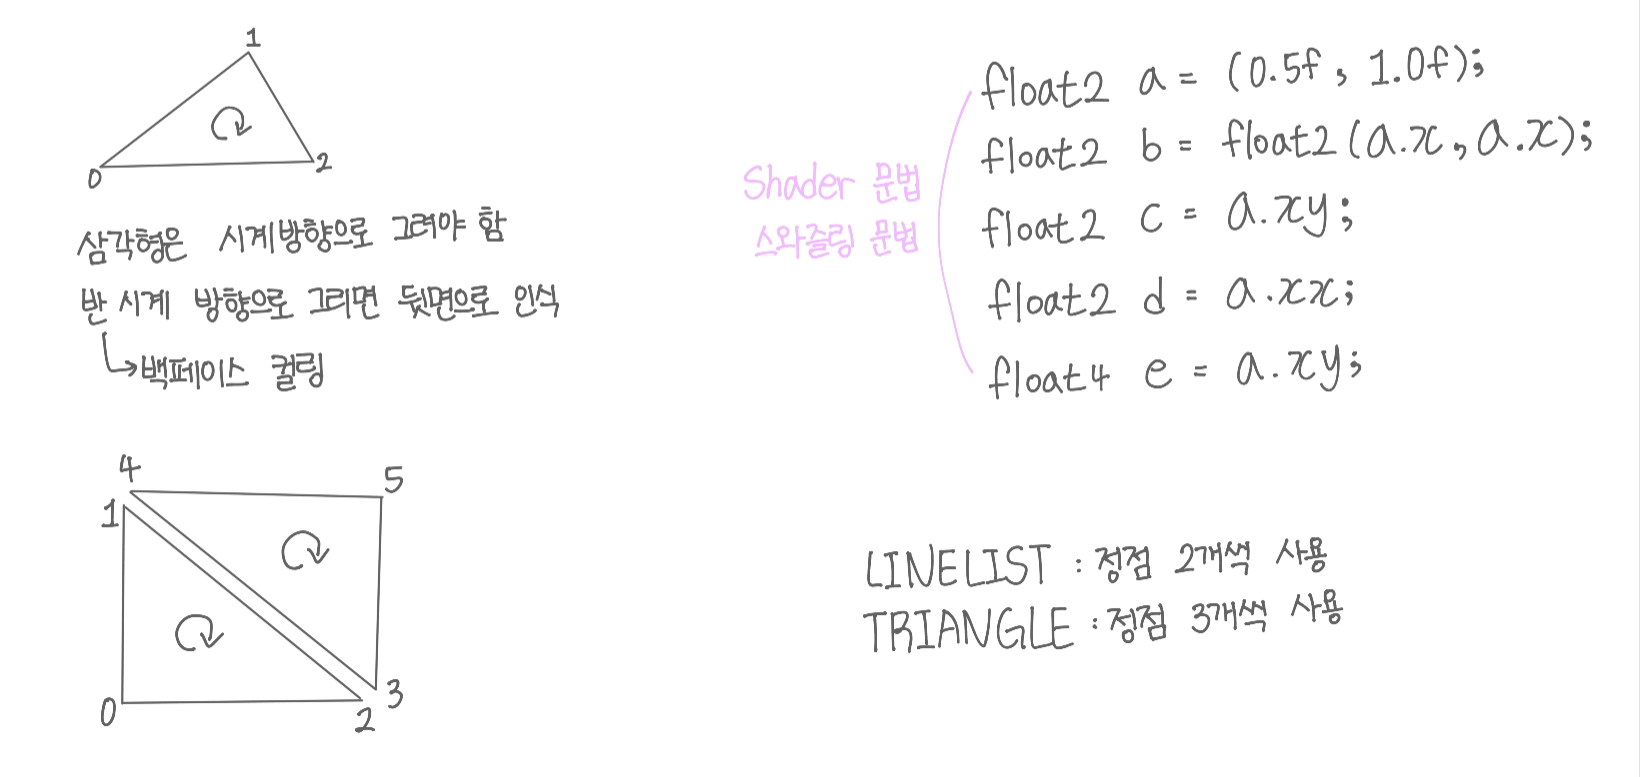 1
0
2
삼각형은 시계방향으로 그려야 함
반 시계 방향으로 그리면 뒷면으로 인식
백페이스 컬링
Shader 문법
스와즐링 문법
float2 a = (0.5f, 1.0f);
float2 b = float2(a.x, a.x);
float2 c = a.xy;
float2 d = a.xx;
float4 e = a.xy;
4
5
1
0
2
3
LINELIST : 정점 2개씩 사용
TRIANGLE : 정점 3개씩 사용